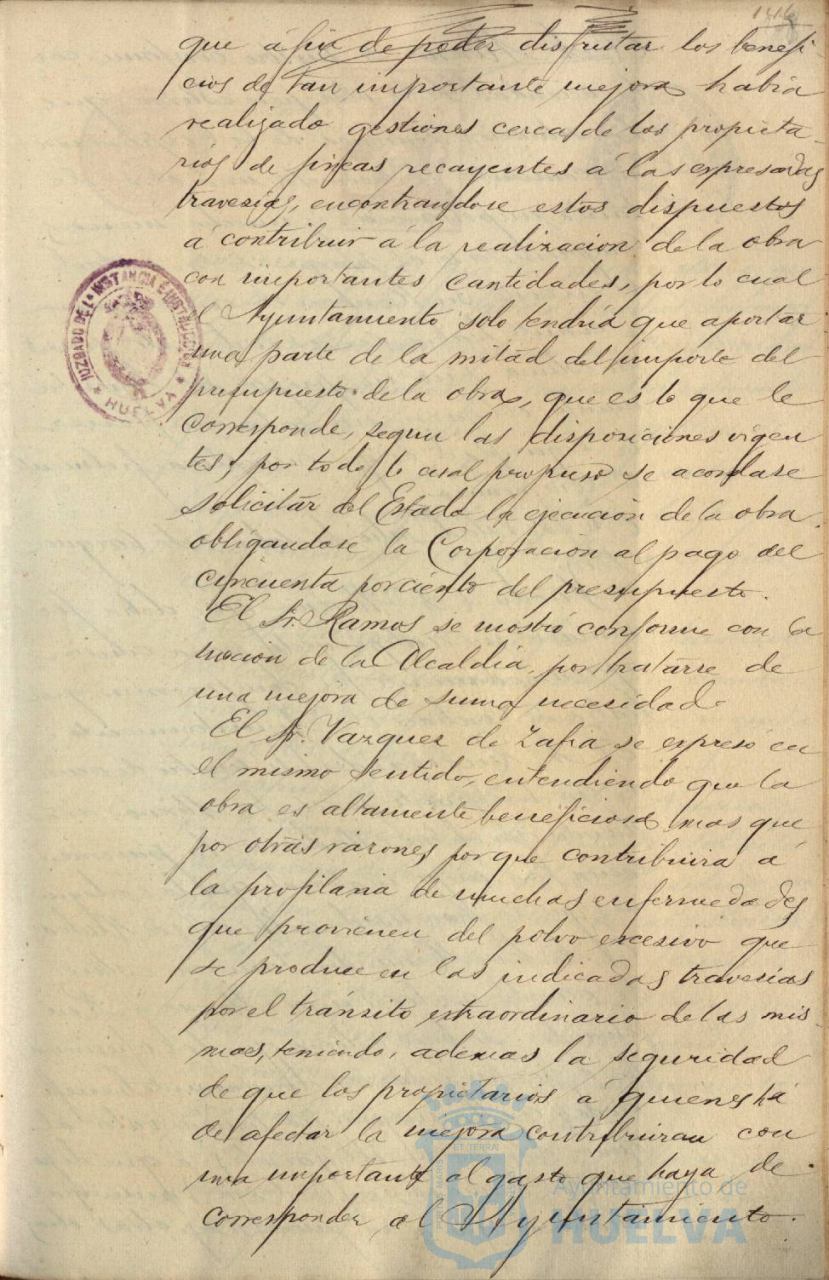 146
que á fin de poder disfrutar los benefi-
cios de tan importante mejora había
realizado gestiones cerca de los propieta-
rios de fincas recayentes á las expresadas
travesias, encontrandose estos dispuestos
á contribuir á la realizacion de la obra
con importantes cantidades, por lo cual
el Ayuntamiento solo tendría que aportar
una parte de la mitad del importe del
presupuesto de la obra, que es lo que le
corresponde, segun las disposiciones vigen
tes; por todo lo cual propuso se acordase
solicitar del Estado la ejecución de la obra
obligandose la Corporación al pago del
cincuenta por ciento del presupuesto.
El Sr. Ramos se mostró conforme con la
moción de la Alcaldía, por tratarse de
una mejora de suma necesidad.
El Sr. Vazquez de Zafra se expresó en
el mismo sentido, entendiendo que la
obra es altamente beneficiosa mas que
por otras razones porque contribuira á
la profilaxia de muchas enfermedades
que provienen del polvo excesivo que
se produce en las indicadas travesías
por el tránsito extraordinario de las mis-
mas, teniendo, ademas la seguridad
de que los propietarios á quienes há
de afectar la mejora contribuiran con
una importante al gasto que haya de
corresponder al Ayuntamiento.
JUZGADO DE 1ª INSTANCIA E INSTRUCCION
HUELVA
Ayuntamiento de
HUELVA